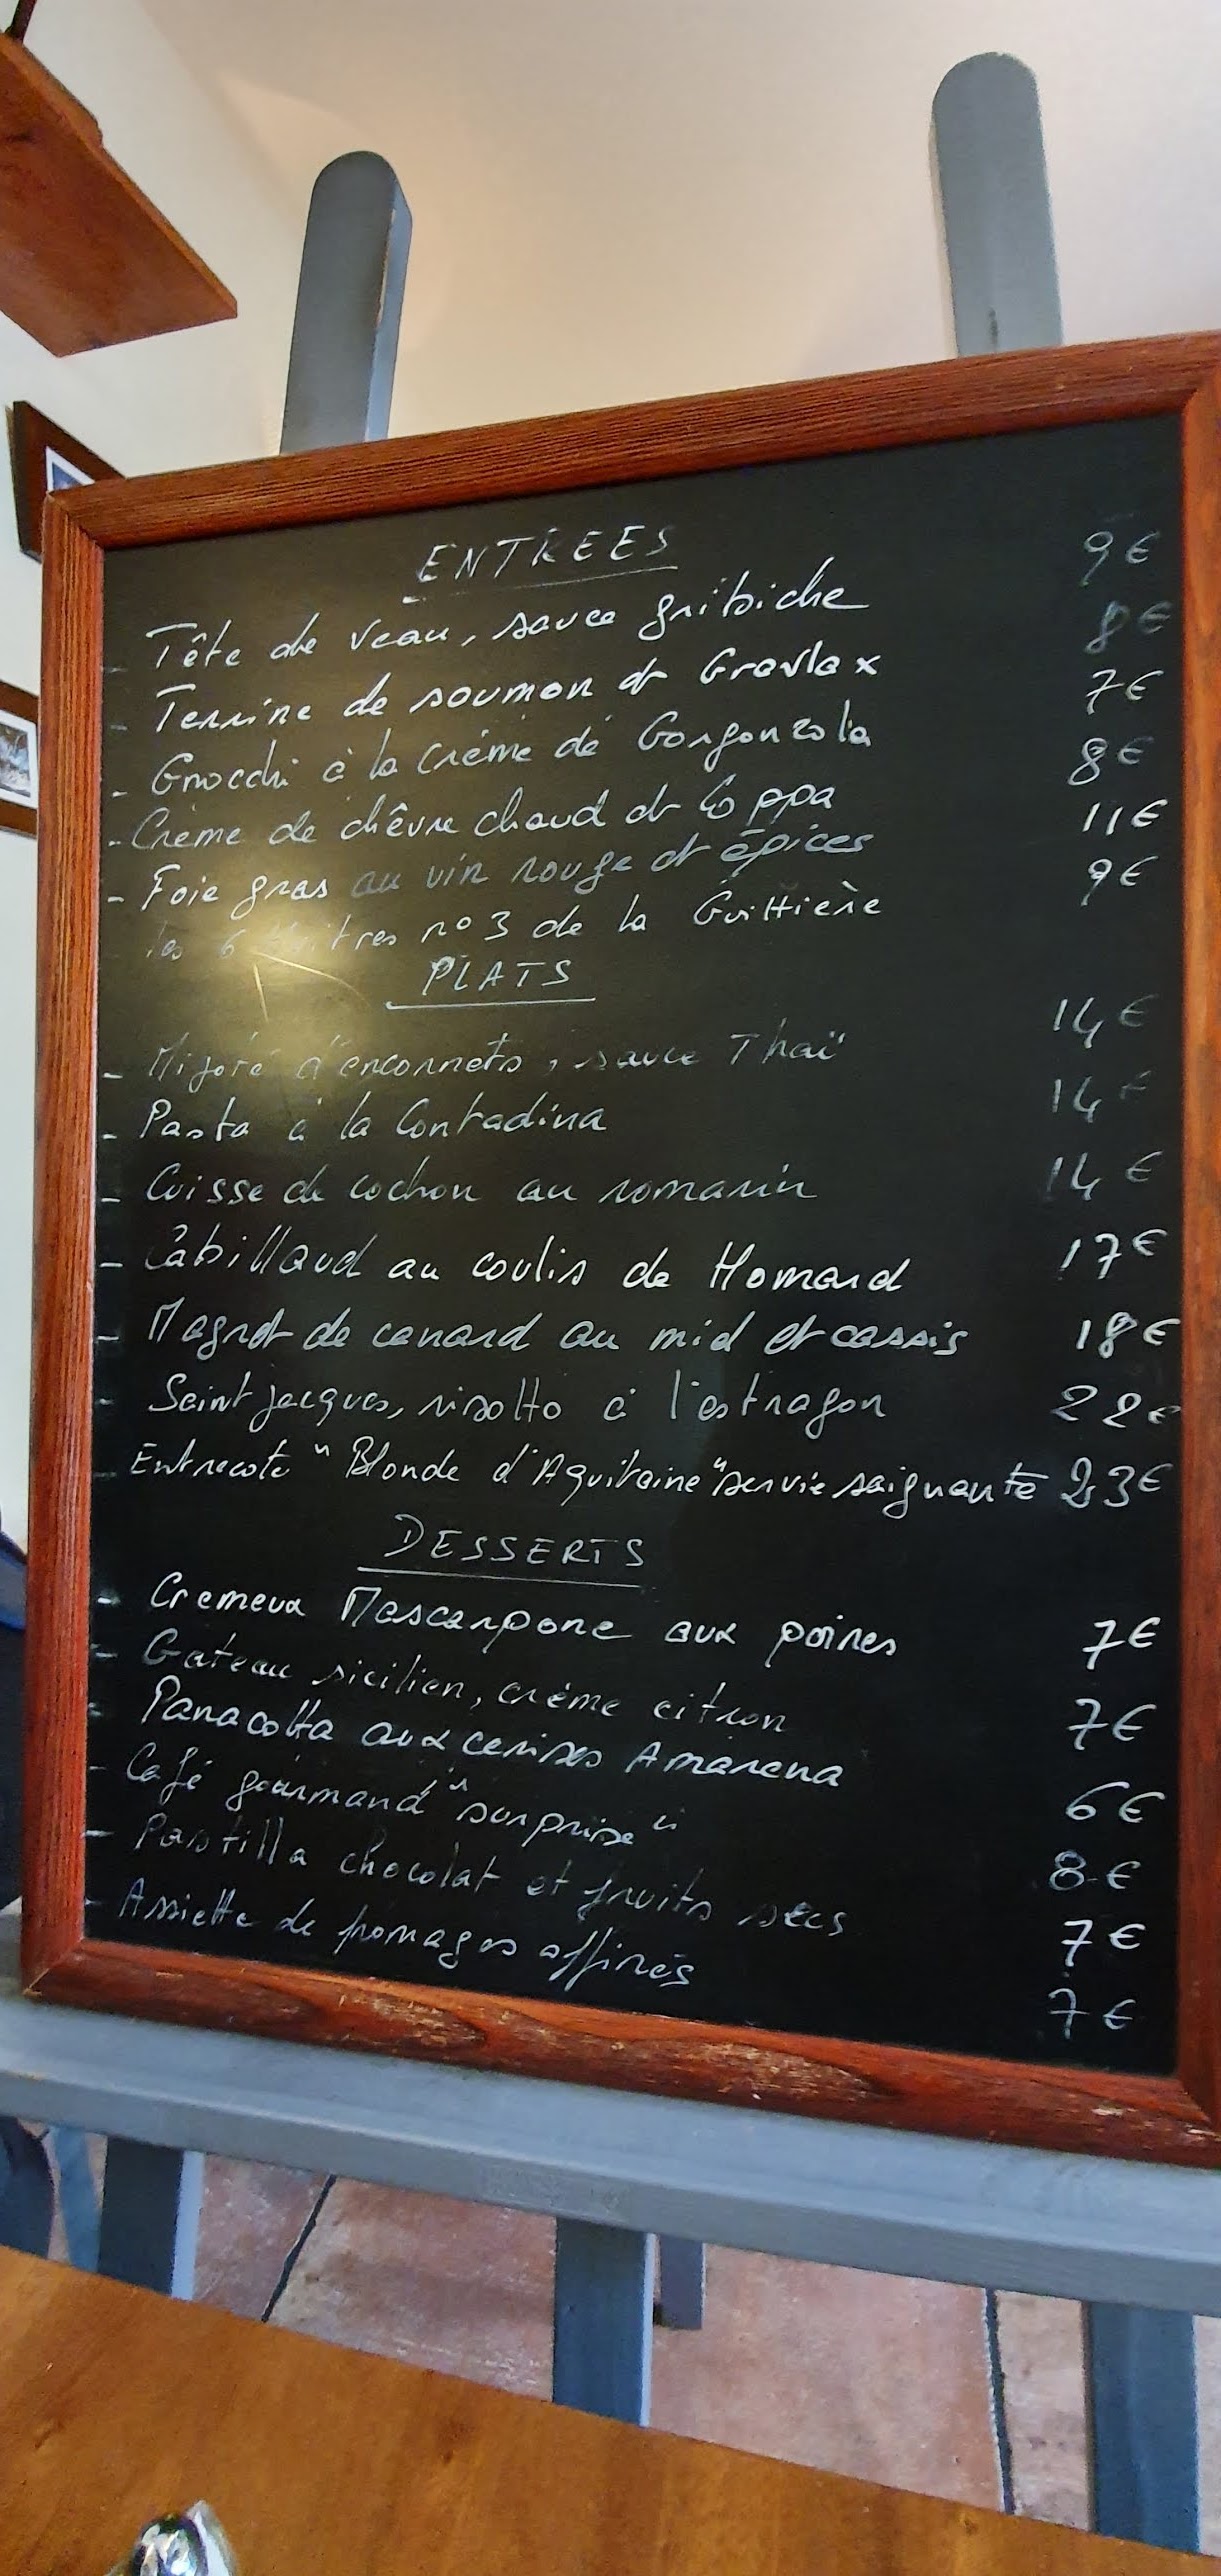 ENTREES
- Tête de veau, sauce gribiche 9€
- Terrine de saumon et Gravlax 8€
- Gnocchi à la crème de Gorgonzola 7€
- Crème de chêvre chaud et Coppa 8€
- Foie gras au vin rouge et épices 11€
les 6 Huitres n°3 de la Guittière 9€
PLATS
- Mijoté d'encornets, sauce Thaï 14€
- Pasta à la Contadina 14€
- Cuisse de cochon au romarin 14€
- Cabillaud au coulis de Homard 17€
- Magret de canard au miel et cassis 18€
- Saint Jacques, risotto à l'estragon 22€
- Entrecote "Blonde d'Aquitaine" servie saignante 23€
DESSERTS
- Cremeux Mascarpone aux poires 7€
- Gateau sicilien, crème citron 7€
- Panacotta aux cerises Amarena 6€
- Café gourmand "surprise" 8€
- Pastilla chocolat et fruits secs 7€
- Assiette de fromages affinés 7€